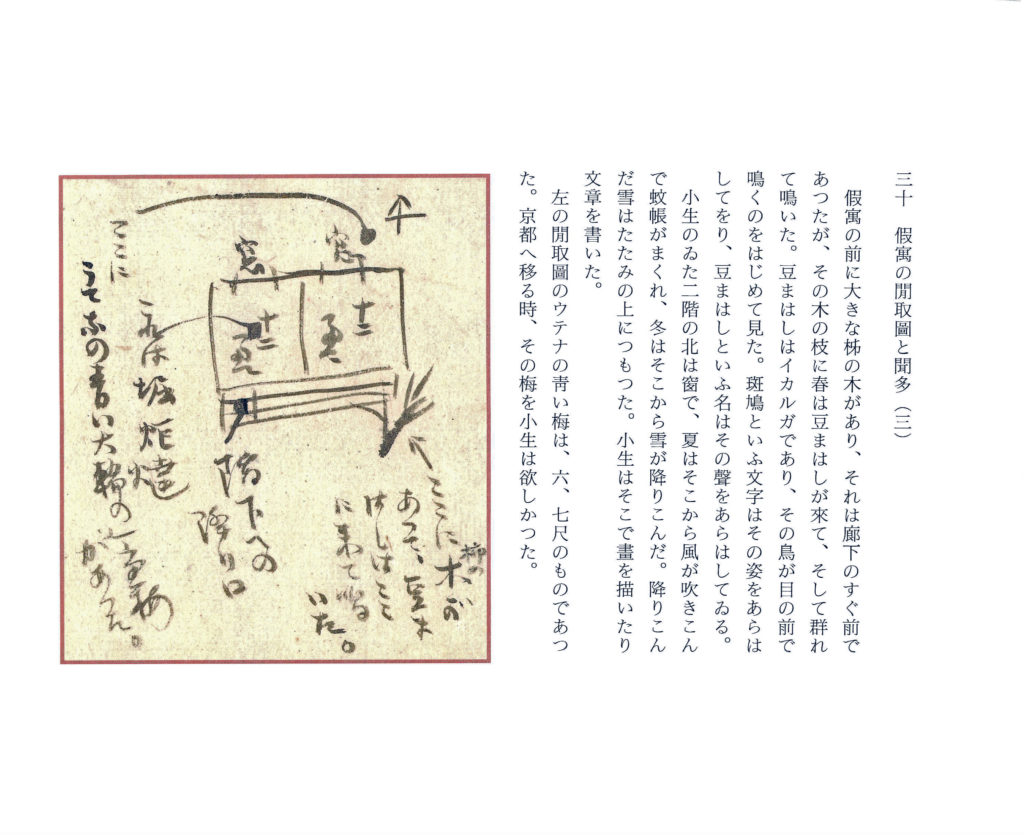 三十　假寓の間取圖と聞多（三）
　假寓の前に大きな柹の木があり、それは廊下のすぐ前で
あつたが、その木の枝に春は豆まはしが來て、そして群れ
て鳴いた。豆まはしはイカルガであり、その鳥が目の前で
鳴くのをはじめて見た。斑鳩といふ文字はその姿をあらは
してをり、豆まはしといふ名はその聲をあらはしてゐる。
　小生のゐた二階の北は窗で、夏はそこから風が吹きこん
で蚊帳がまくれ、冬はそこから雪が降りこんだ。降りこん
だ雪はたたみの上につもつた。小生はそこで畫を描いたり
文章を書いた。
　左の間取圖のウテナの靑い梅は、六、七尺のものであつ
た。京都へ移る時、その梅を小生は欲しかつた。
窓
窓
十二
十二
ここに柿の木が
あつて、豆ま
はしはここ
に来て鳴
いた。
階下への
降り口
これは堀炬燵
ここに
うてなの青い大輪の
梅
があつた。